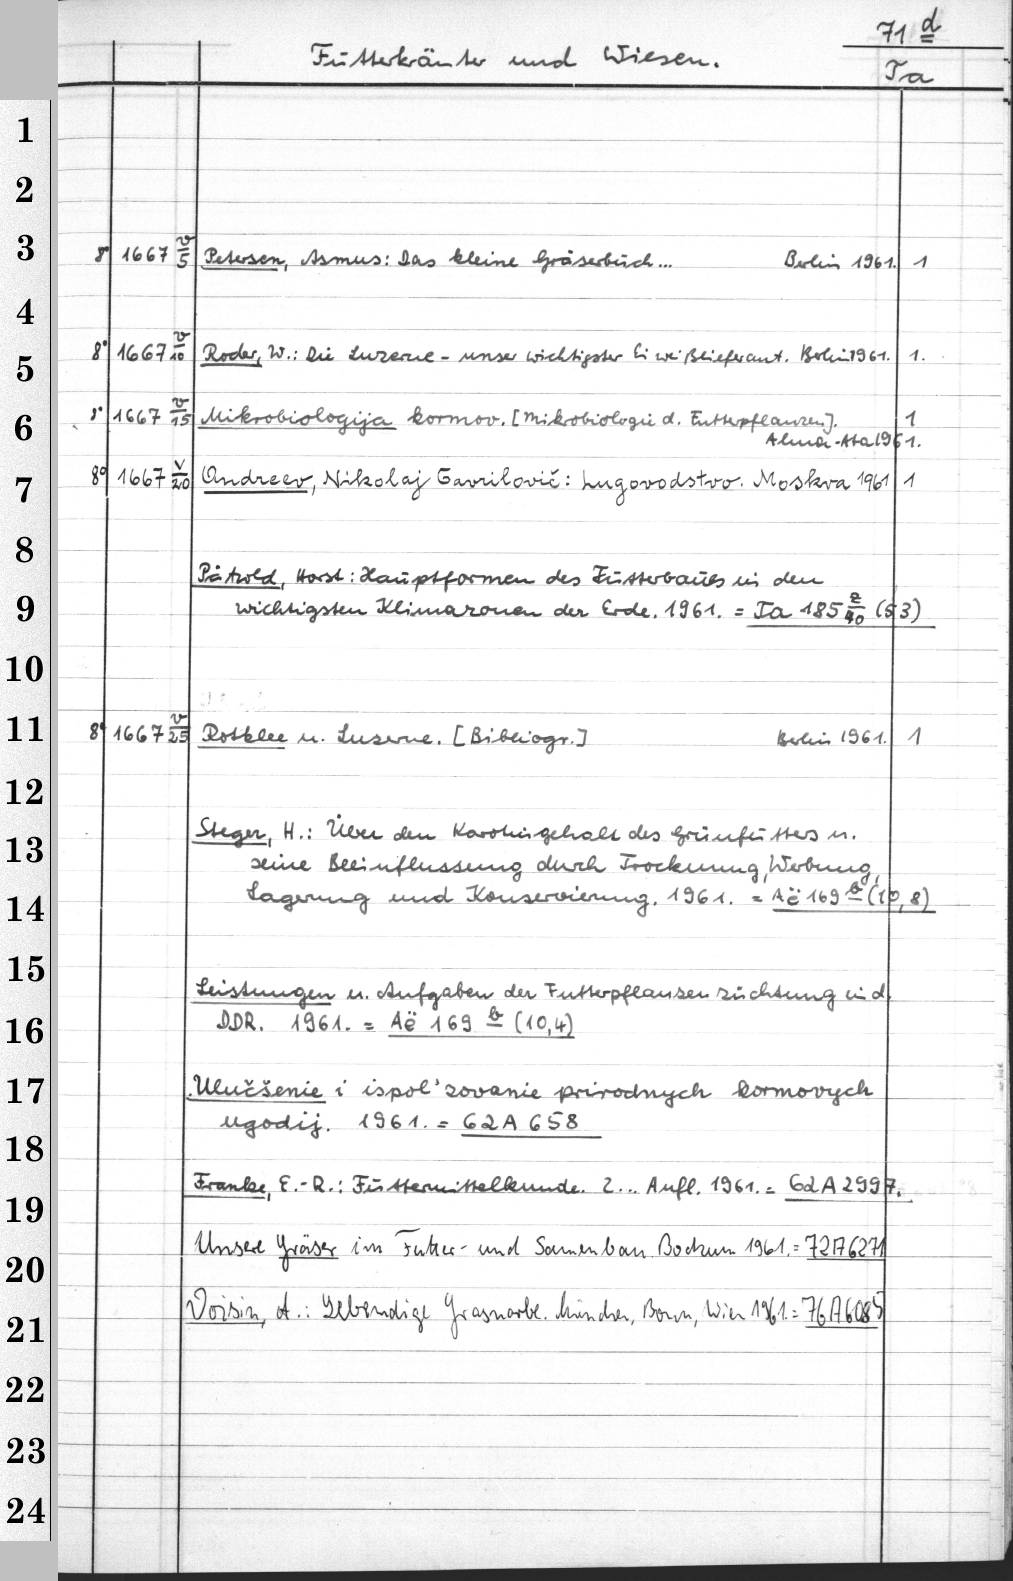 71 d
Futterkräuter und Wiesen.
Ta
1
2
3 8° 1667 v/5 Petersen, Asmus: Das kleine Gräserbuch... Berlin 1961. 1
4
5 8° 1667 v/10 Roder, W.: Die Luzerne - unser wichtigster Eiweißlieferant. Berlin 1961. 1.
6 8° 1667 v/15 Mikrobiologija kormov. [Mikrobiologie d. Futterpflanzen]. 1
Alma-Ata 1961.
7 8° 1667 v/20 Andreev, Nikolaj Gavrilovič: Lugovodstvo. Moskva 1961 1
8
Pätzold, Horst: Hauptformen des Futterbaues in den
9 wichtigsten Klimazonen der Erde. 1961. = Ta 185 z/40 (53)
10
11 8° 1667 v/25 Rotklee u. Luzerne. [Bibliogr.] Berlin 1961. 1
12
13 Steger, H.: Über den Karotingehalt des Grünfutters u.
seine Beeinflussung durch Trocknung, Werbung,
14 Lagerung und Konservierung. 1961. = Aë 169 b (10,8)
15
Leistungen u. Aufgaben der Futterpflanzenzüchtung in d.
16 DDR. 1961. = Aë 169 b (10,4)
17 Ulučšenie i ispol'zovanie prirodnych kormovych
ugodij. 1961. = 62 A 658
18
19 Franke, E.-R.: Futtermittelkunde. 2... Aufl. 1961. = 62 A 2997.
20 Unsere Gräser im Futter- und Samenbau. Bochum 1961. = 72 A 6271
21 Voisin, A.: Lebendige Grasnarbe. München, Bonn, Wien 1961. = 76 A 6085
22
23
24